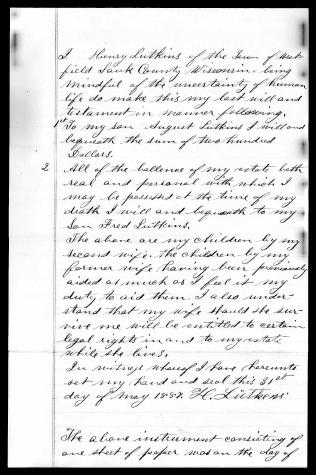 I Henry Lutkins of the Town of West
field Sauk County Wisconsin being
mindful of the uncertainty of human
life do make this my last will and
testament in manner following.
1st To my son August Lutkins I will and
bequeath the sum of two hundred
Dollars.
2 All of the ballence of my estate both
real and personal with which I
may be possessed at the time of my
death I will and bequeath to my
Son Fred Lutkins.
The above are my children by my
second wife. the children by my
former wife having been previously
aided as much as I feel it my
duty to aid them. I also under-
stand that my wife should she sur-
vive me will be entitled to certain
legal rights in and to my estate
while she lives.
In witness whereof I have hereunto
set my hand and seal this 31st
day of May 1887. H. Lütkens
The above instrument consisting of
one sheet of paper was on the day of